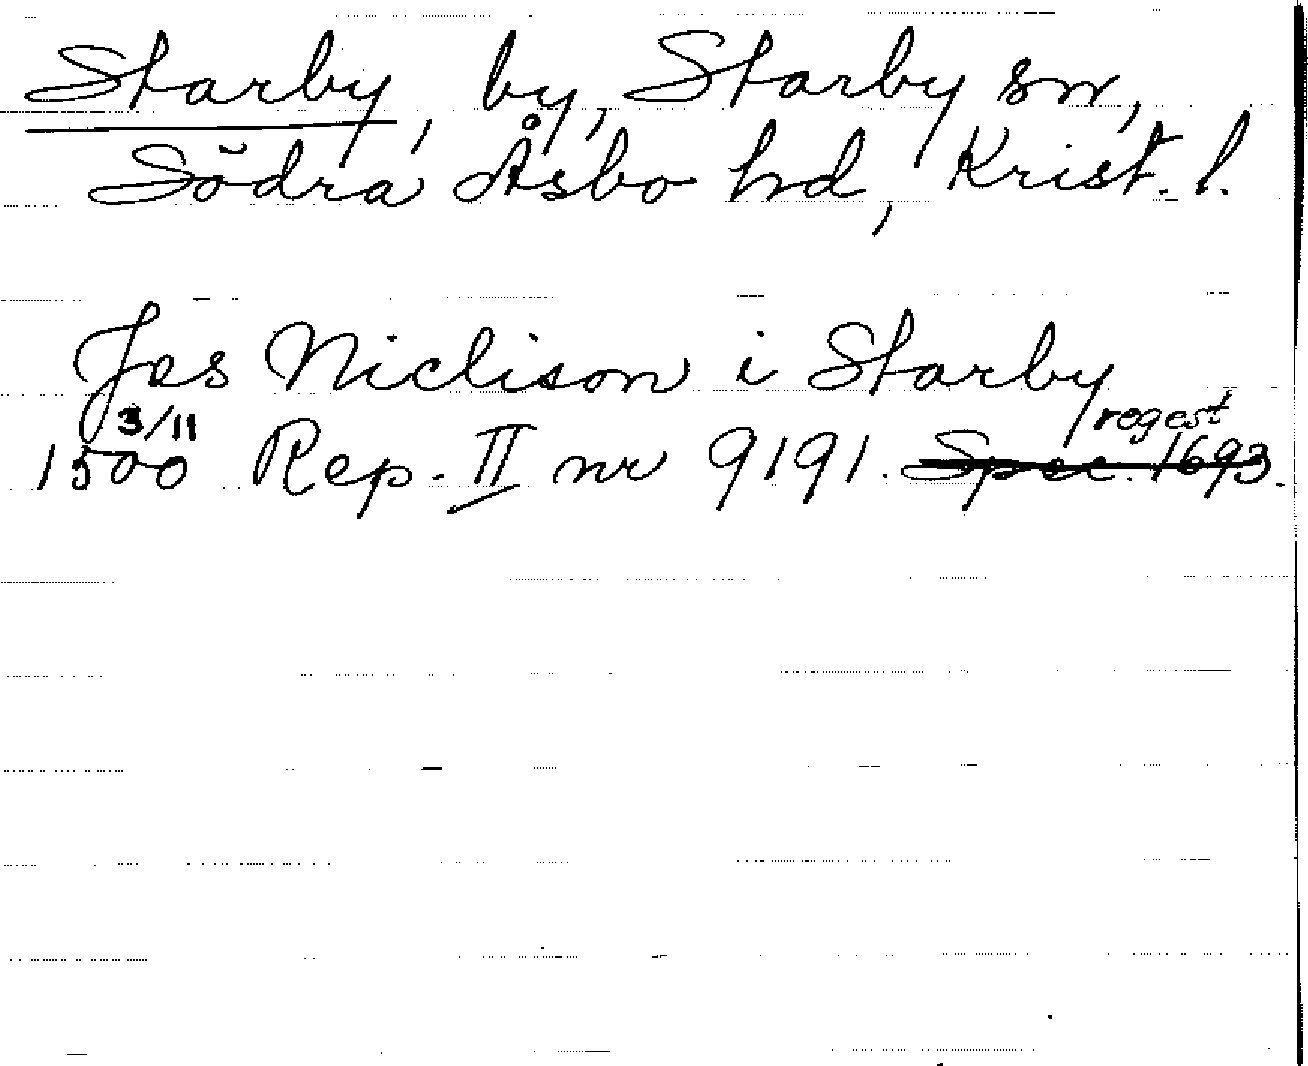 Starby, by, Starby sn,
Södra Åsbo hd, Krist. l.
Jes Niclison i Starby
3/11 regest
1500 Rep. II nr 9191. Spec. 1693.